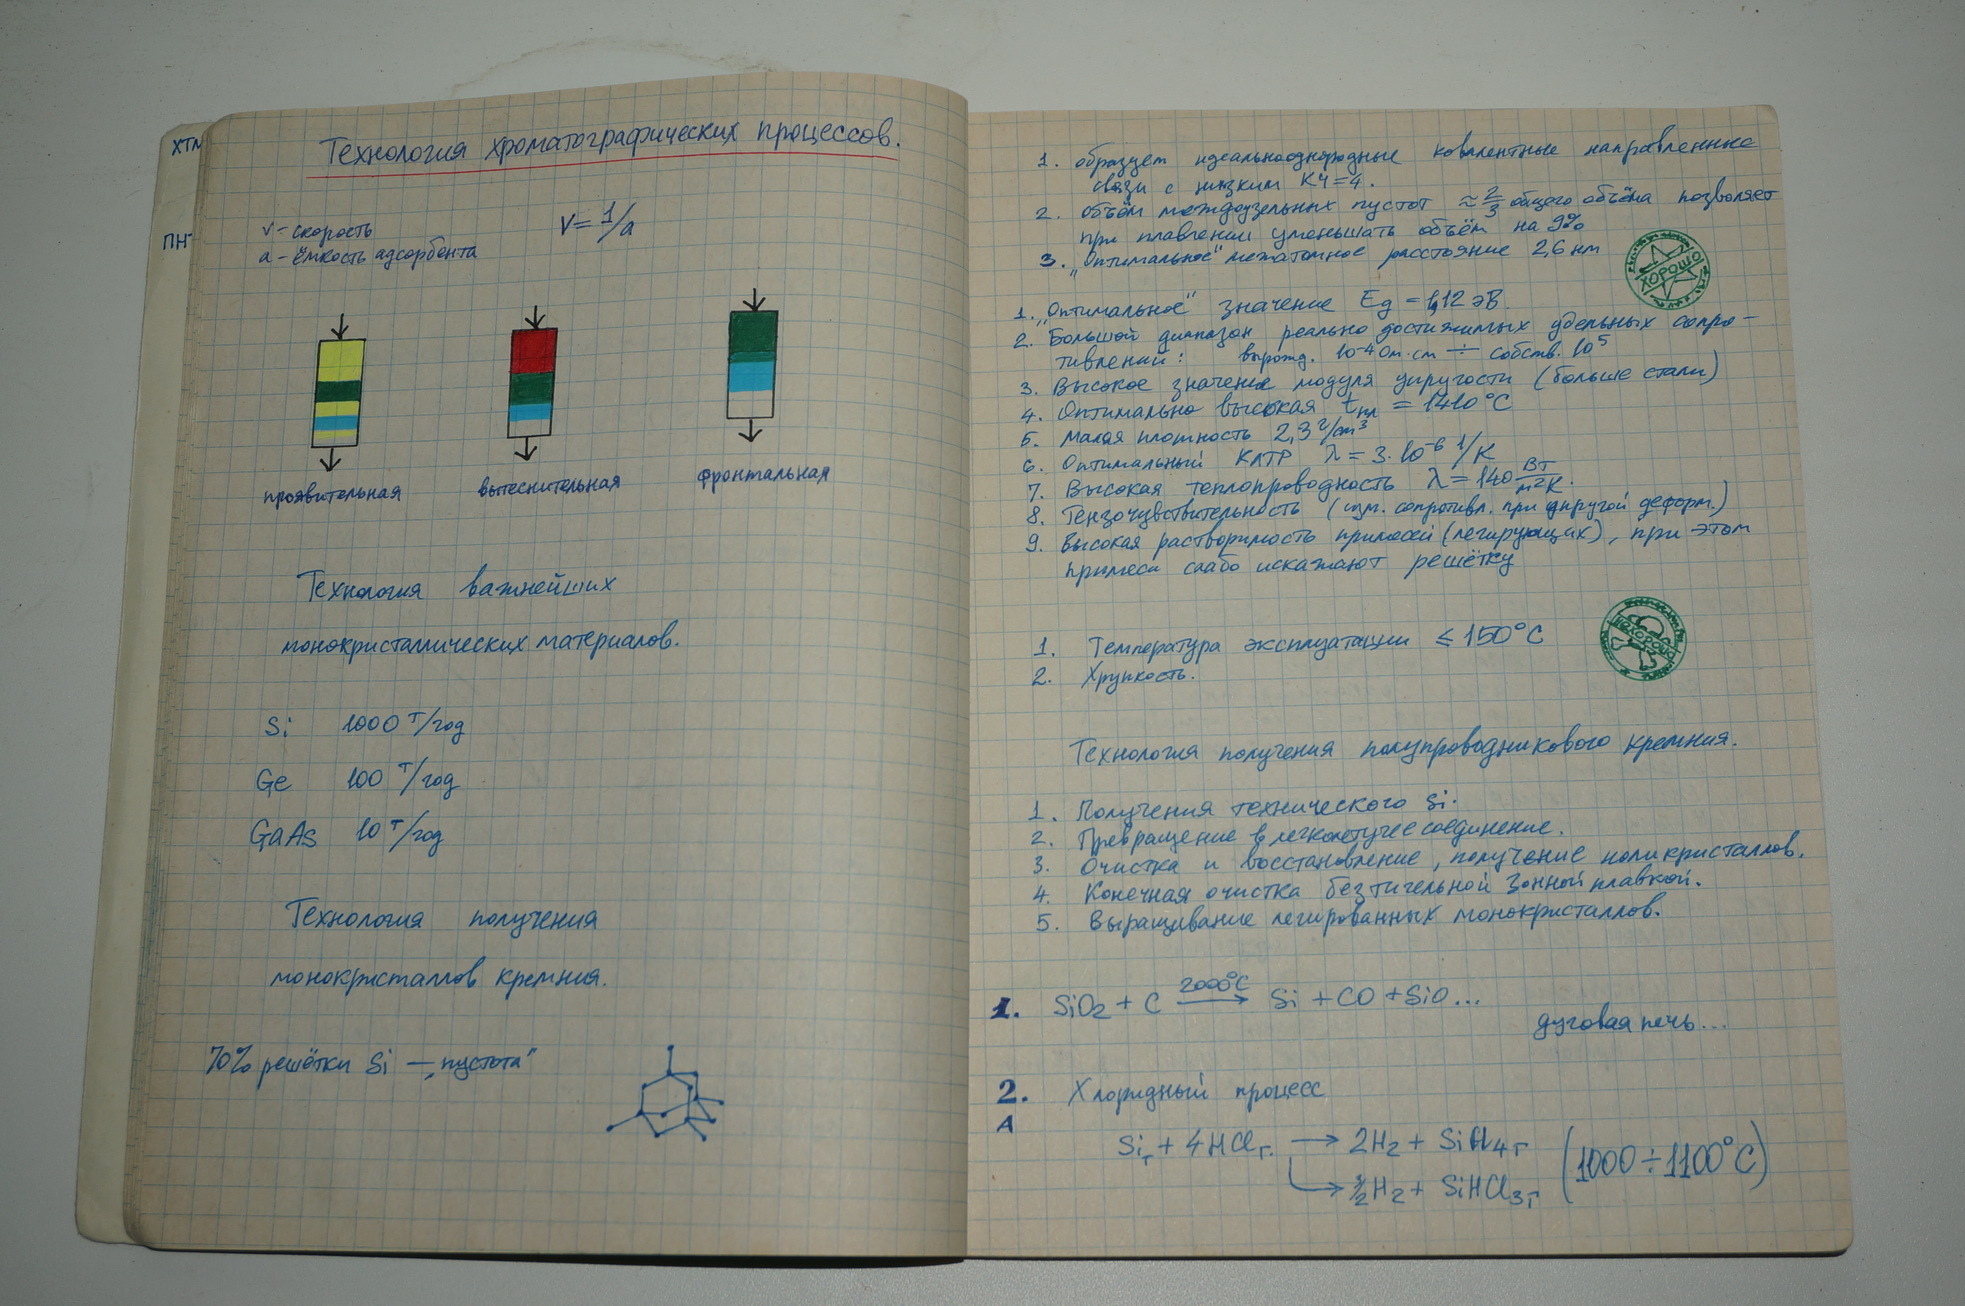 ХТМ
ПН
Технология хроматографических процессов.
v - скорость
a - ёмкость адсорбента
v = 1/a
проявительная
вытеснительная
фронтальная
Технология важнейших
монокристаллических материалов.
Si 1000 т/год
Ge 100 т/год
GaAs 10 т/год
Технология получения
монокристаллов кремния.
70% решётки Si — „пустота“
1. образует идеальнооднородные ковалентные направленные
связи с низким КЧ=4.
2. объём междоузельных пустот ≈ 2/3 общего объёма позволяет
при плавлении уменьшать объём на 9%
3. „Оптимальное“ межатомное расстояние 2,6 нм
ХОРОШО
1. „Оптимальное“ значение Eg = 1,12 эВ.
2. Большой диапазон реально достижимых удельных сопро-
тивлений: вырожд. 10⁻⁴ Ом·см ÷ собств. 10⁵
3. Высокое значение модуля упругости (больше стали)
4. Оптимально высокая tпл = 1410°C
5. Малая плотность 2,3 г/см³
6. Оптимальный КЛТР λ = 3·10⁻⁶ 1/K
7. Высокая теплопроводность λ = 140 Вт/м²К.
8. Тензочувствительность (изм. сопротивл. при упругой деформ.)
9. Высокая растворимость примесей (легирующих), при этом
примеси слабо искажают решётку
НЕХОРОШО
1. Температура эксплуатации ≤ 150°C
2. Хрупкость.
Технология получения полупроводникового кремния.
1. Получения технического Si.
2. Превращение в легколетучее соединение.
3. Очистка и восстановление, получение поликристаллов.
4. Конечная очистка безтигельной зонной плавкой.
5. Выращивание легированных монокристаллов.
1. SiO₂ + C 2000°C → Si + CO + SiO...
дуговая печь...
2. Хлоридный процесс
A
Siт + 4HClг. → 2H₂ + SiCl₄г (1000÷1100°C)
→ 3/2H₂ + SiHCl₃г